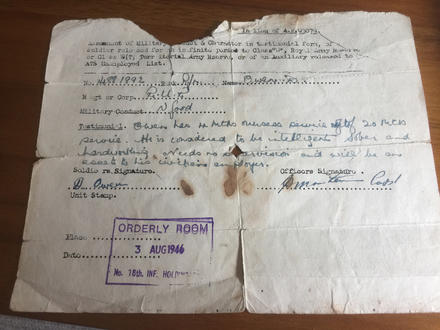 In lieu of
Assessment of Military Conduct & Character in testimonial form, of
soldier released for an indefinite period to Class"W", Royal Army Reserve
or Class W(T) Terr itorial Army Reserve, or of an Auxiliary released to
ATS Unemployed List.
No. Rank Name
Regt or Corp.
Military Conduct. Good
Testimonial. Owen has months overseas service out of 20 months
service. He is considered to be intelligent sober and
hardworking needs no supervision and will be an
asset to his civilian employer.
Soldie rs.Signature. Officers Signature.
D. Owen Capt
Unit Stamp.
ORDERLY ROOM
Place
3 AUG 1946
Date
No. 18th. INF. HOLDING